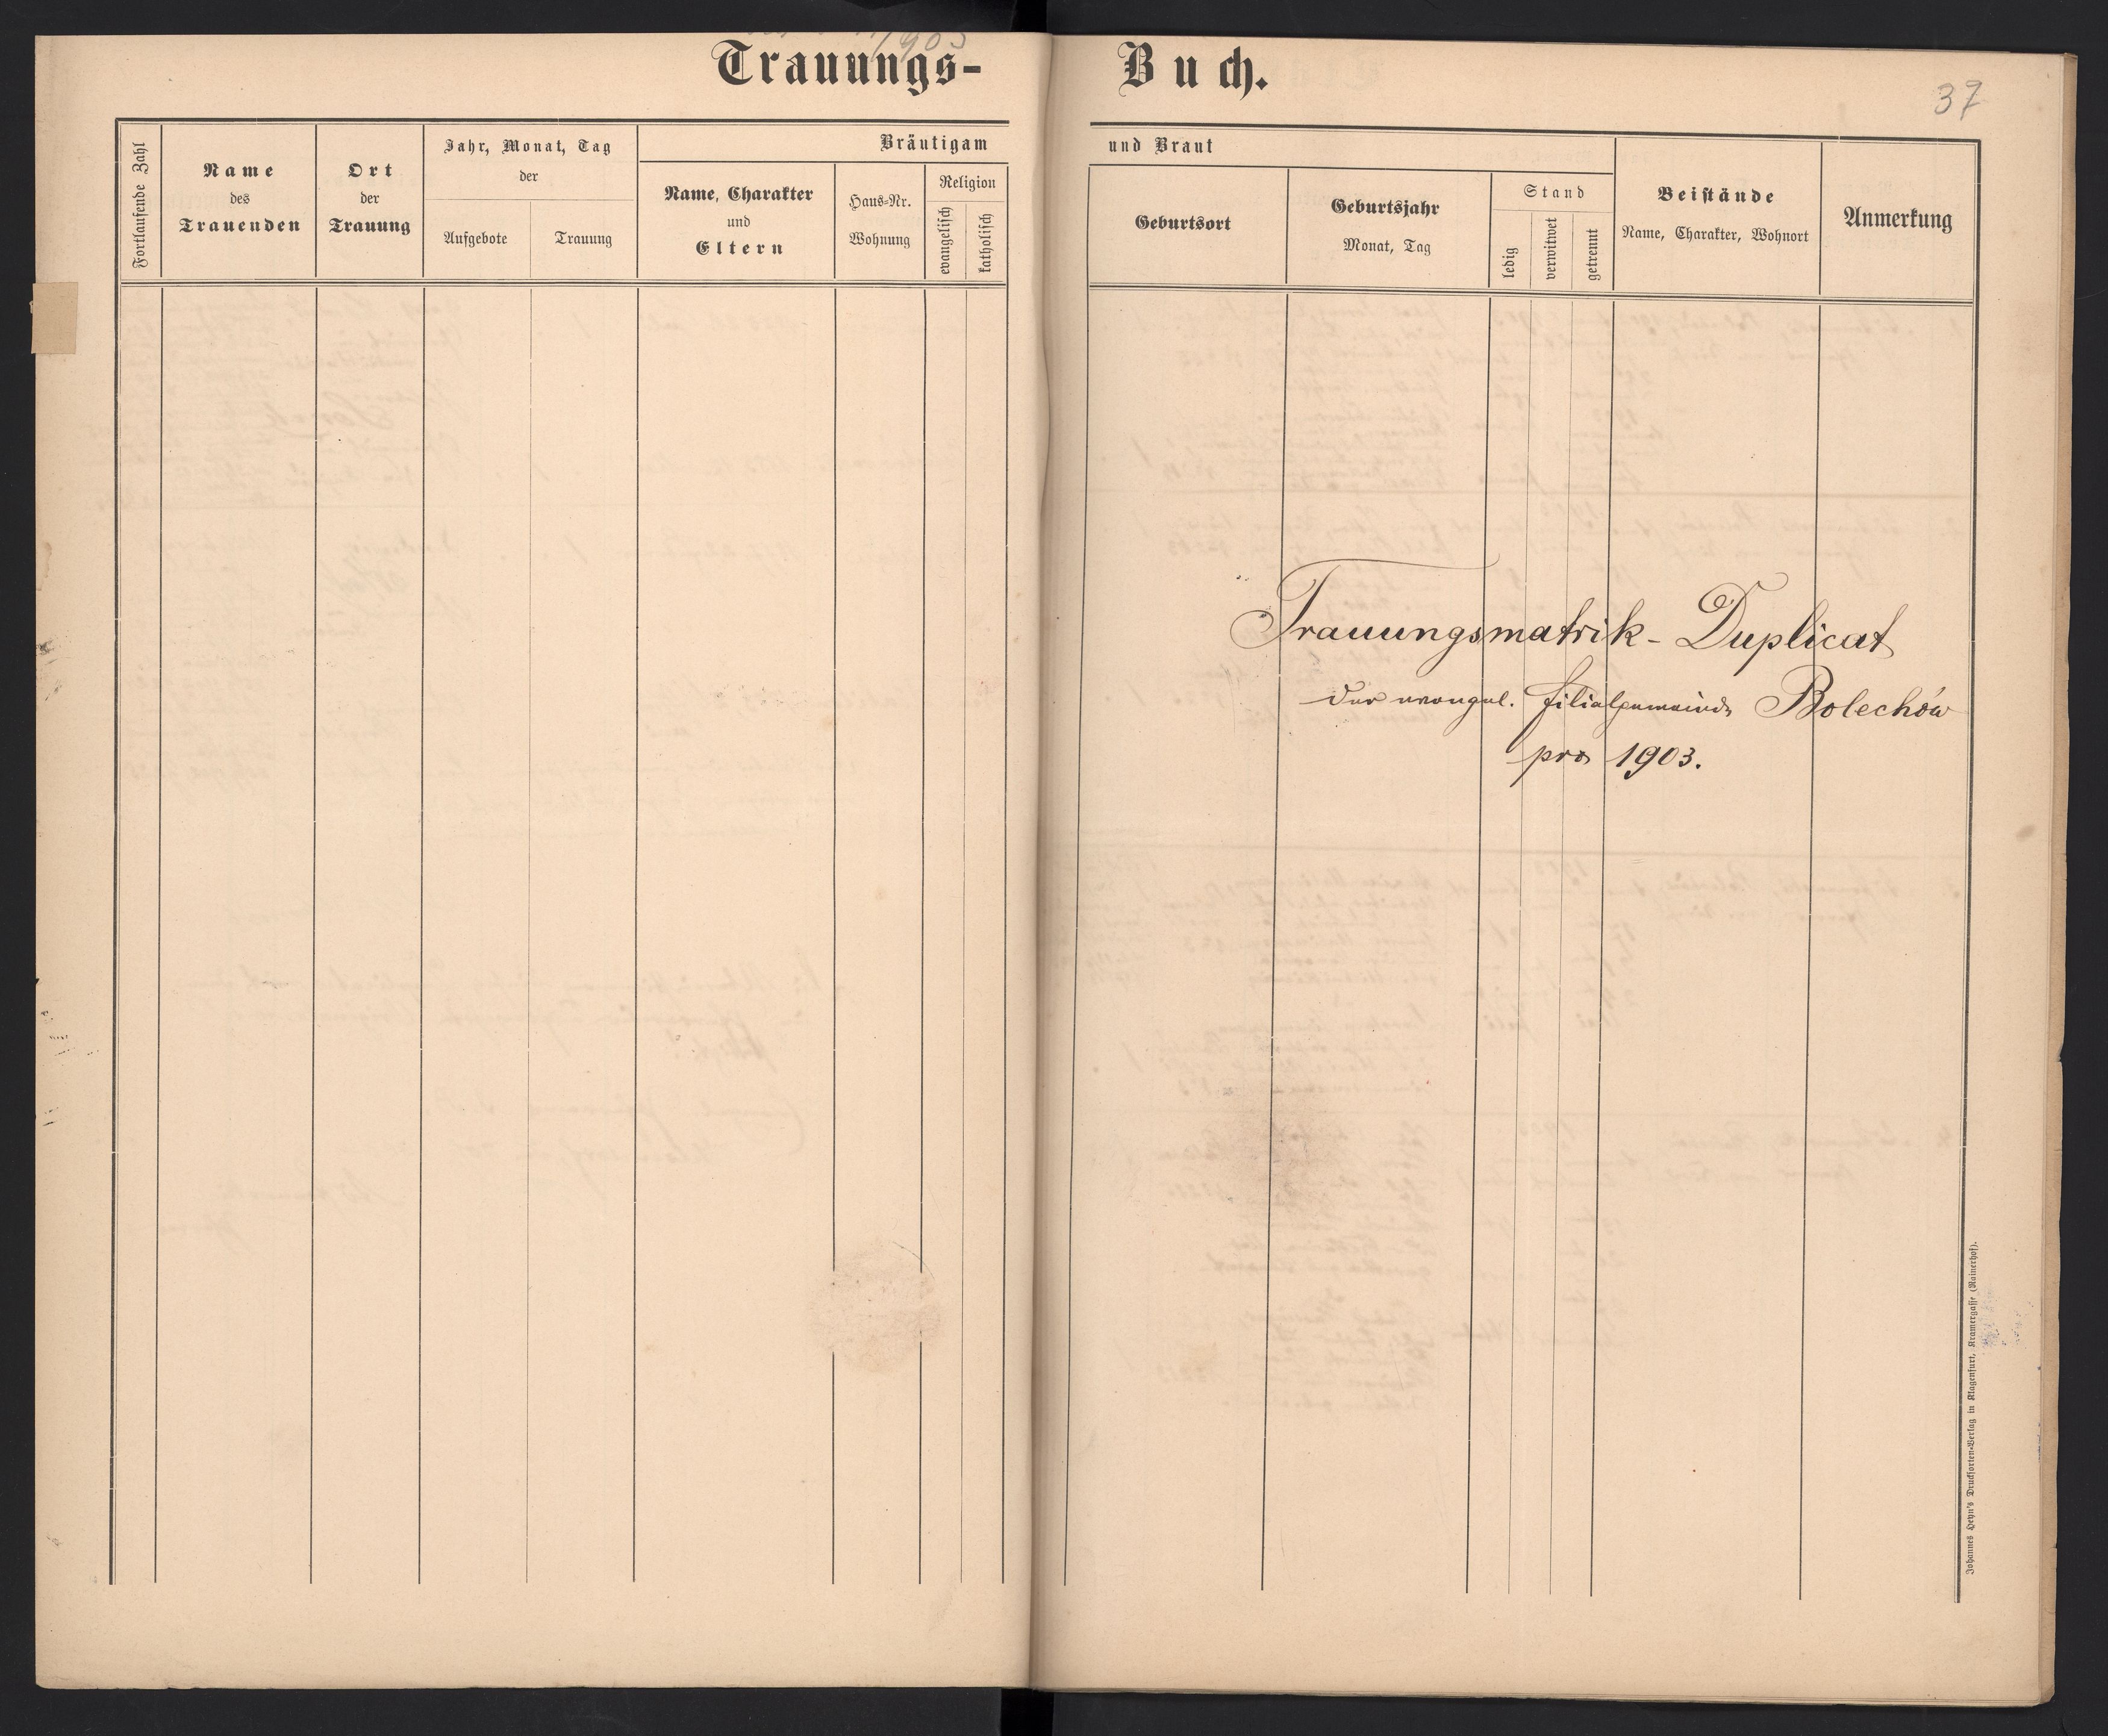 Trauungs-
Buch.
37
Fortlaufende Zahl
Name
des
Trauenden
Ort
der
Trauung
Jahr, Monat, Tag
der
Aufgebote
Trauung
Bräutigam
Name, Charakter
und
Eltern
Haus-Nr.
Wohnung
Religion
evangelisch
katholisch
und Braut
Geburtsort
Geburtsjahr
Monat, Tag
Stand
ledig
verwitwet
getrennt
Beistände
Name, Charakter, Wohnort
Anmerkung
Trauungsmatrik - Duplicat
der evangel. Filialgemeinde Bolechów
pro 1903.
Johannes Heyn's Drucksorten-Verlag in Klagenfurt, Kramergasse (Rainerhof).